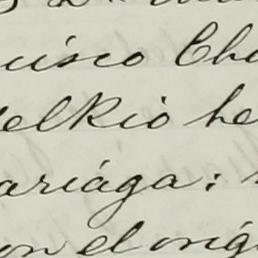 cisco Cha
elkio he
ariága:
on el orig